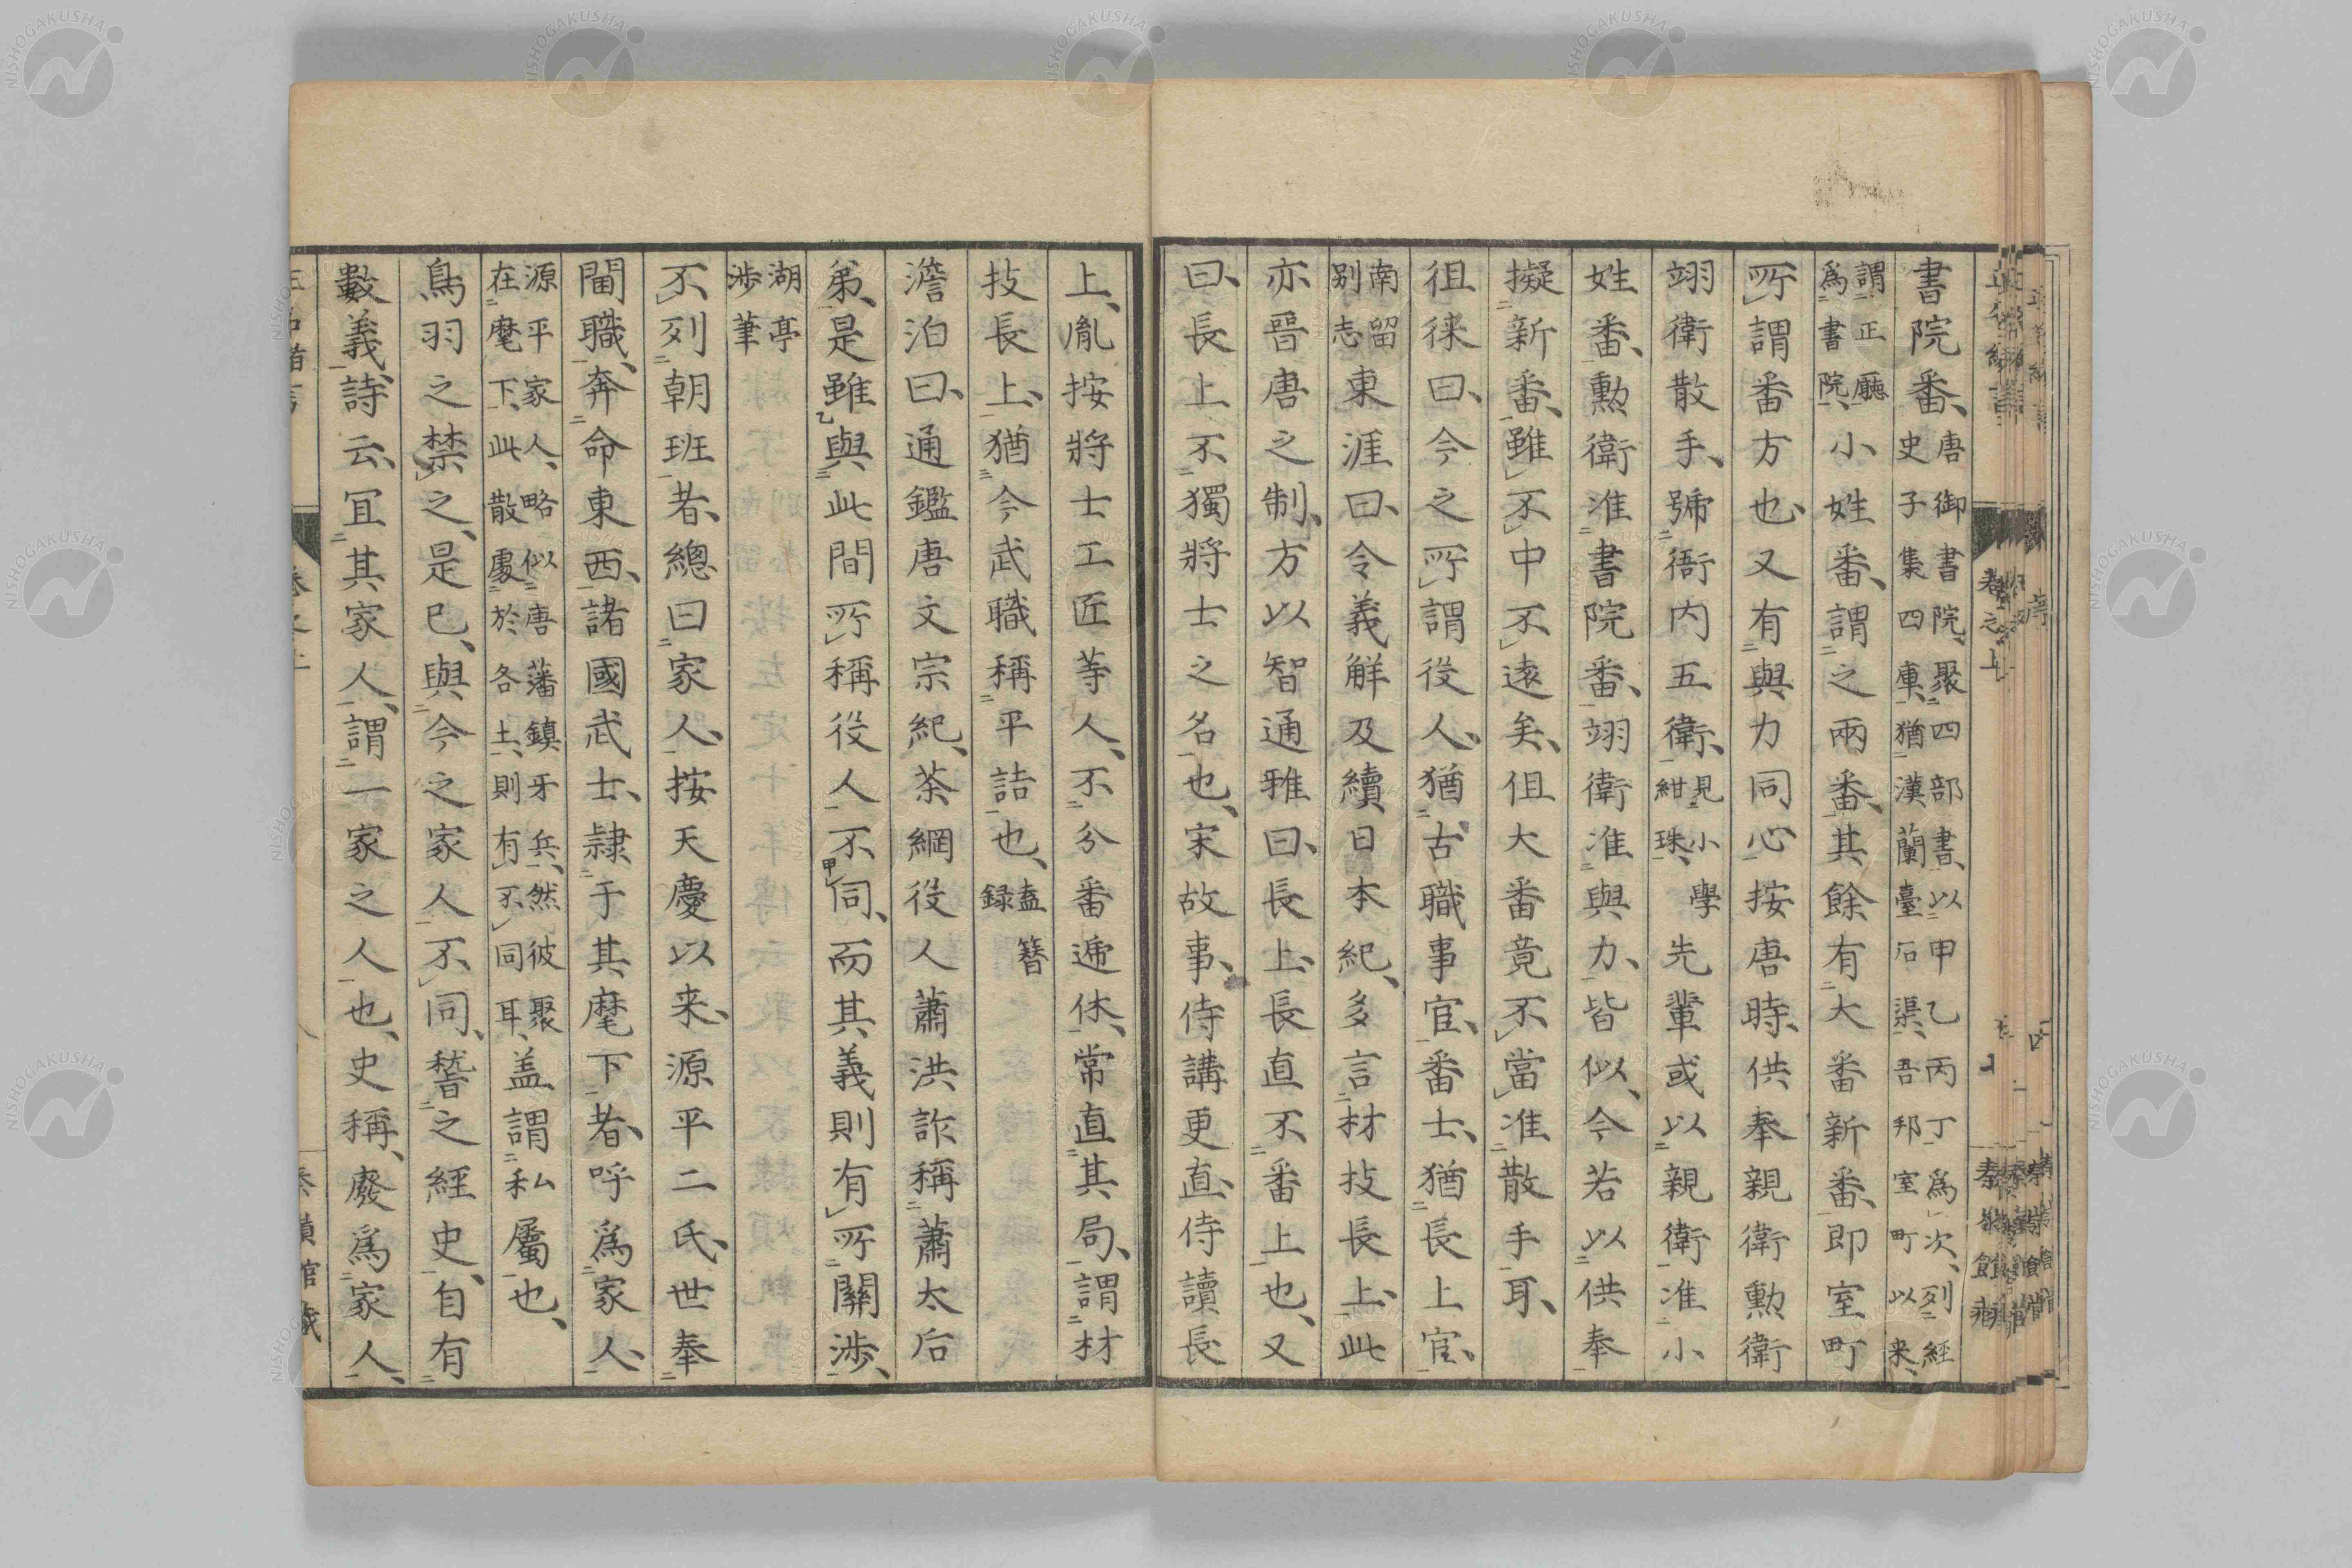 書院番、唐御書院、聚四部書、以甲乙丙丁爲次、列經史子集四庫、猶漢蘭臺石渠、吾邦室町以来、
謂正廳爲書院、小姓番、謂之兩番、其餘有大番新番、即室町
所謂番方也、又有與力同心、按唐時、供奉親衛勲衛
翊衛散手、號衙内五衛、見小學紺珠、先輩或以親衛准小
姓番、勲衛准書院番、翊衛准與力、皆似、今若以供奉
擬新番、雖不中不遠矣、但大番竟不當准散手耳、
徂徕曰、今之所謂役人、猶古職事官、番士、猶長上官、
南留别志東涯曰、令義觧及續日本紀、多言材技長上、此
亦晉唐之制、方以智通雅曰、長上、長直不番上也、又
曰、長上不獨將士之名也、宋故事、侍講更直、侍讀長
上、胤按將士工匠等人、不分番遞休、常直其局、謂材
技長上、猶今武職稱平詰也、盍簪録
澹泊曰、通鑑唐文宗紀、茶綱役人蕭洪詐稱蕭太后
弟、是雖與此間所稱役人不同、而其義則有所關渉、
湖亭渉筆
不列朝班者、總曰家人、按天慶以来、源平二氏、世奉
閫職、奔命東西、諸國武士、隷于其麾下者、呼爲家人、
源平家人、略似唐藩鎮牙兵、然彼聚在麾下、此散處於各土、則有不同耳、盖謂私屬也、
鳥羽之禁之、是已、與今之家人不同、稽之經史、自有
數義、詩云、宜其家人、謂一家之人也、史稱、廢爲家人、